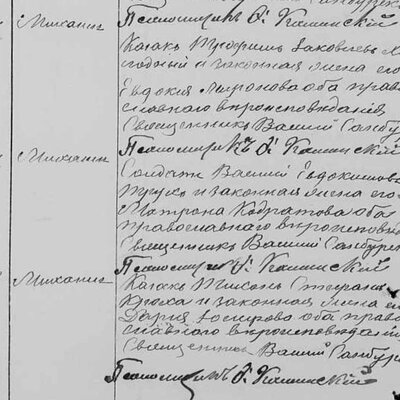 Михаилъ
Псаломщикъ Ѳ. Калинскій
Казакъ Трофимъ Іаковлевъ
годный и законная жена его
Евдокия Миронова оба право
славнаго вѣроисповѣданія
Священникъ Василій Самбур
Михаилъ
Псаломщикъ Ѳ. Калинскій
Солдатъ Василій Евдокимовъ
и законная жена его
Матрона Кодратова оба
православнаго вѣроисповѣд
Священникъ Василій Самбурс
Михаилъ
Псаломщикъ Ѳ. Калинскій
Казакъ Стефан
и законная жена е
Дарія Іосифова оба право
славнаго вѣроисповѣдан
Священникъ Василій Самбур
Псаломщикъ Ѳ. Калинскій